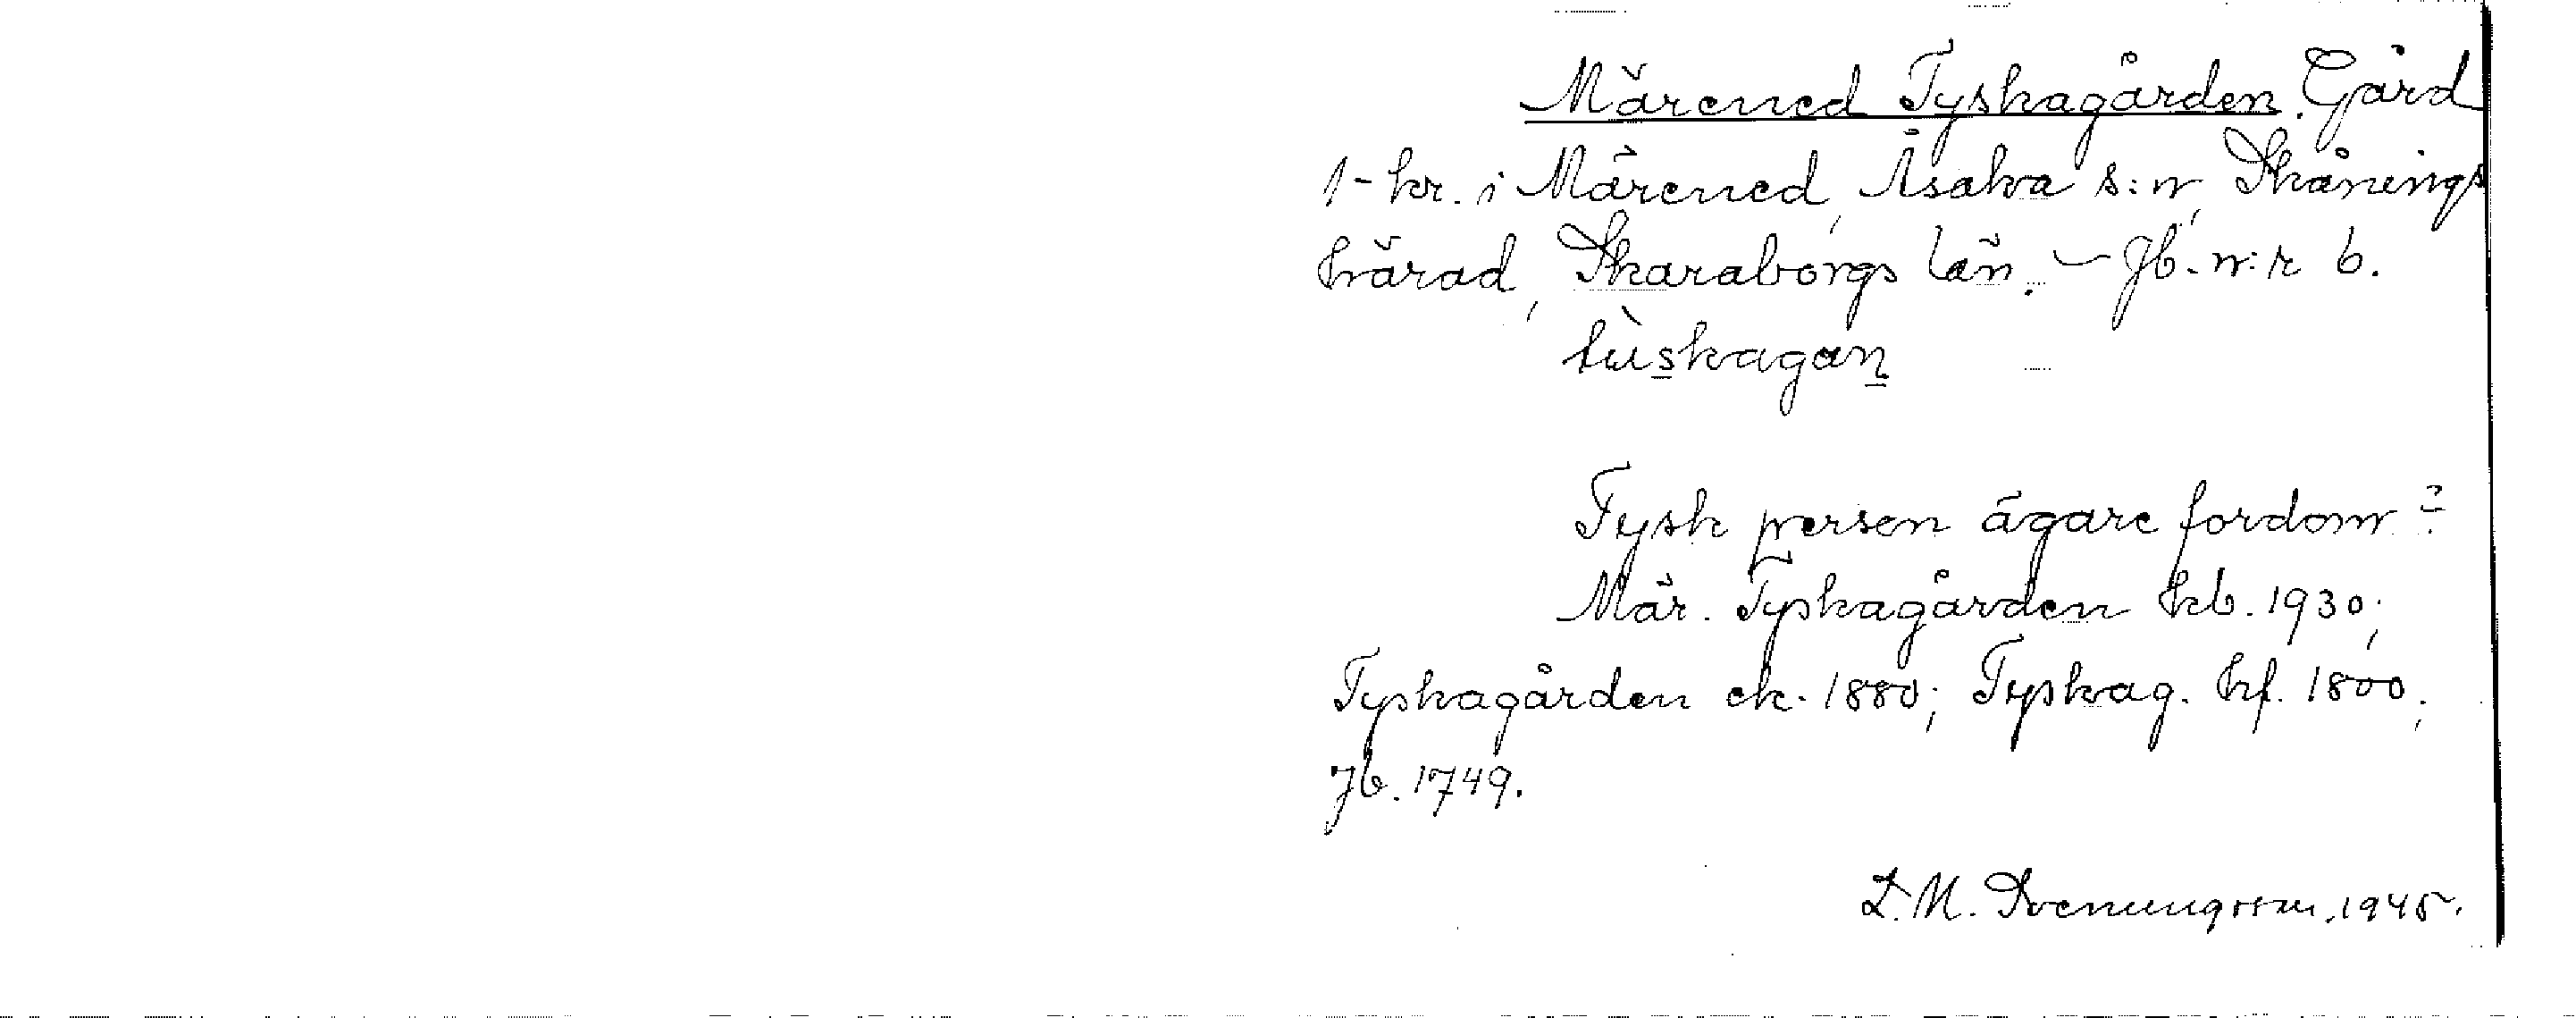 Märened Tyskagården. Gård
1-kr. i Märened, Åsaka s:n, Skånings
härad, Skaraborgs län. – Jb. n:r 6.
tùskagan
Tysk person ägare fordom?
Mär. Tyskagården kb. 1930;
Tyskagården ek. 1880; Tyskag. hf. 1800;
Jb. 1749.
L. M. Svenungsson. 1945.